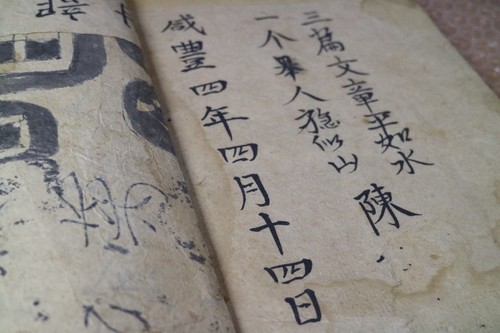 三篇文章平如水
一个舉人穏似山
陳
咸豐四年四月十四日